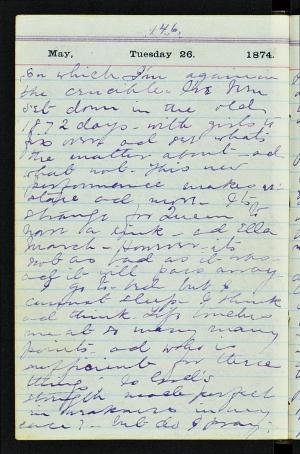 146.
May, Tuesday 26. 1874.
for which I'm again in
the crucible. We
set down in the old
1872 days - with girls to
and see what's
the matter about - ad
what not. This new
performance makes
ad more. Its
strange for Queen to
ad Ella
March - However - its
not as bad as it was -
ad it will pass away.
I go to bed but I
cannot sleep. I think
ad think. Life touches
me at so many many
points - ad who is
sufficient for these
things? Is God's
strength made perfect
in weakness in my
case? - but do I pray?